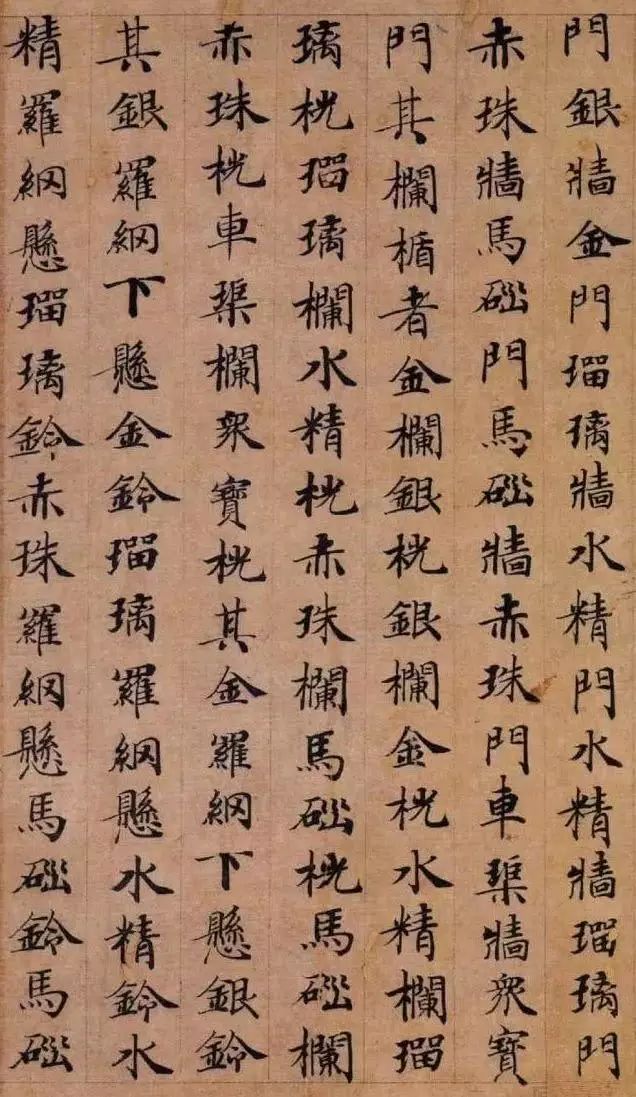 門銀牆金門瑠璃牆水精門水精牆瑠璃門
赤珠牆馬碯門馬碯牆赤珠門車渠牆衆寶
門其欄楯者金欄銀桄銀欄金桄水精欄瑠
璃桄瑠璃欄水精桄赤珠欄馬碯桄馬碯欄
赤珠桄車渠欄衆寶桄其金羅網下懸銀鈴
其銀羅網下懸金鈴瑠璃羅網懸水精鈴水
精羅網懸瑠璃鈴赤珠羅網懸馬碯鈴馬碯